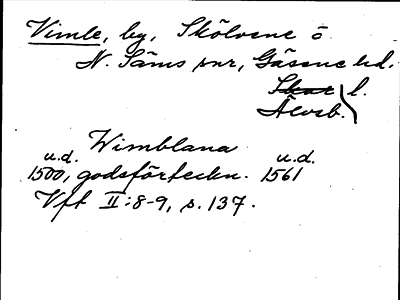 Vimle, by, Skölvene ö
N. Säms snr, Gäsene hd.
Skar } l.
Älvsb.
Wimblana
u.d. u.d.
1500, godsförteckn. 1561
Vft II:8-9, s. 137.